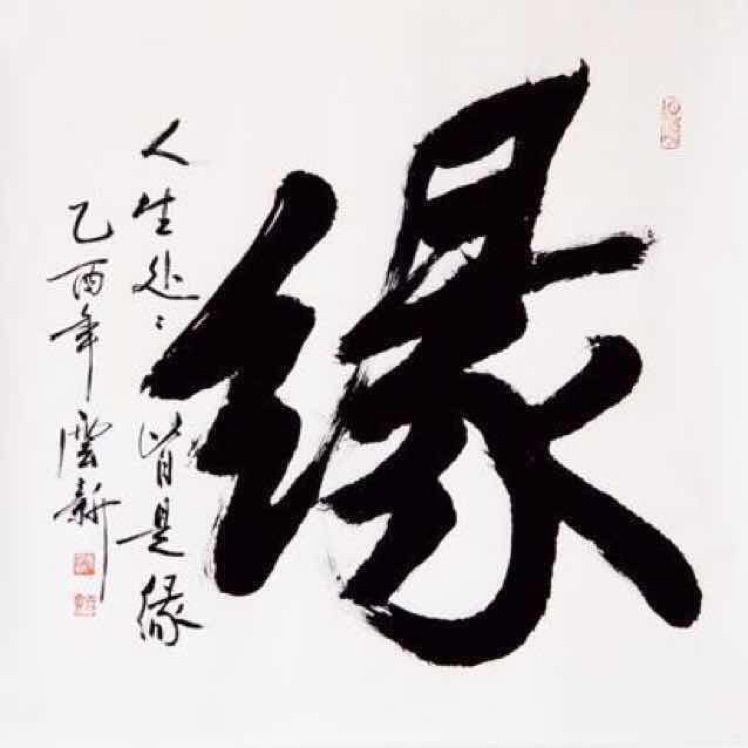 缘
人生处々皆是缘
乙酉年 云新